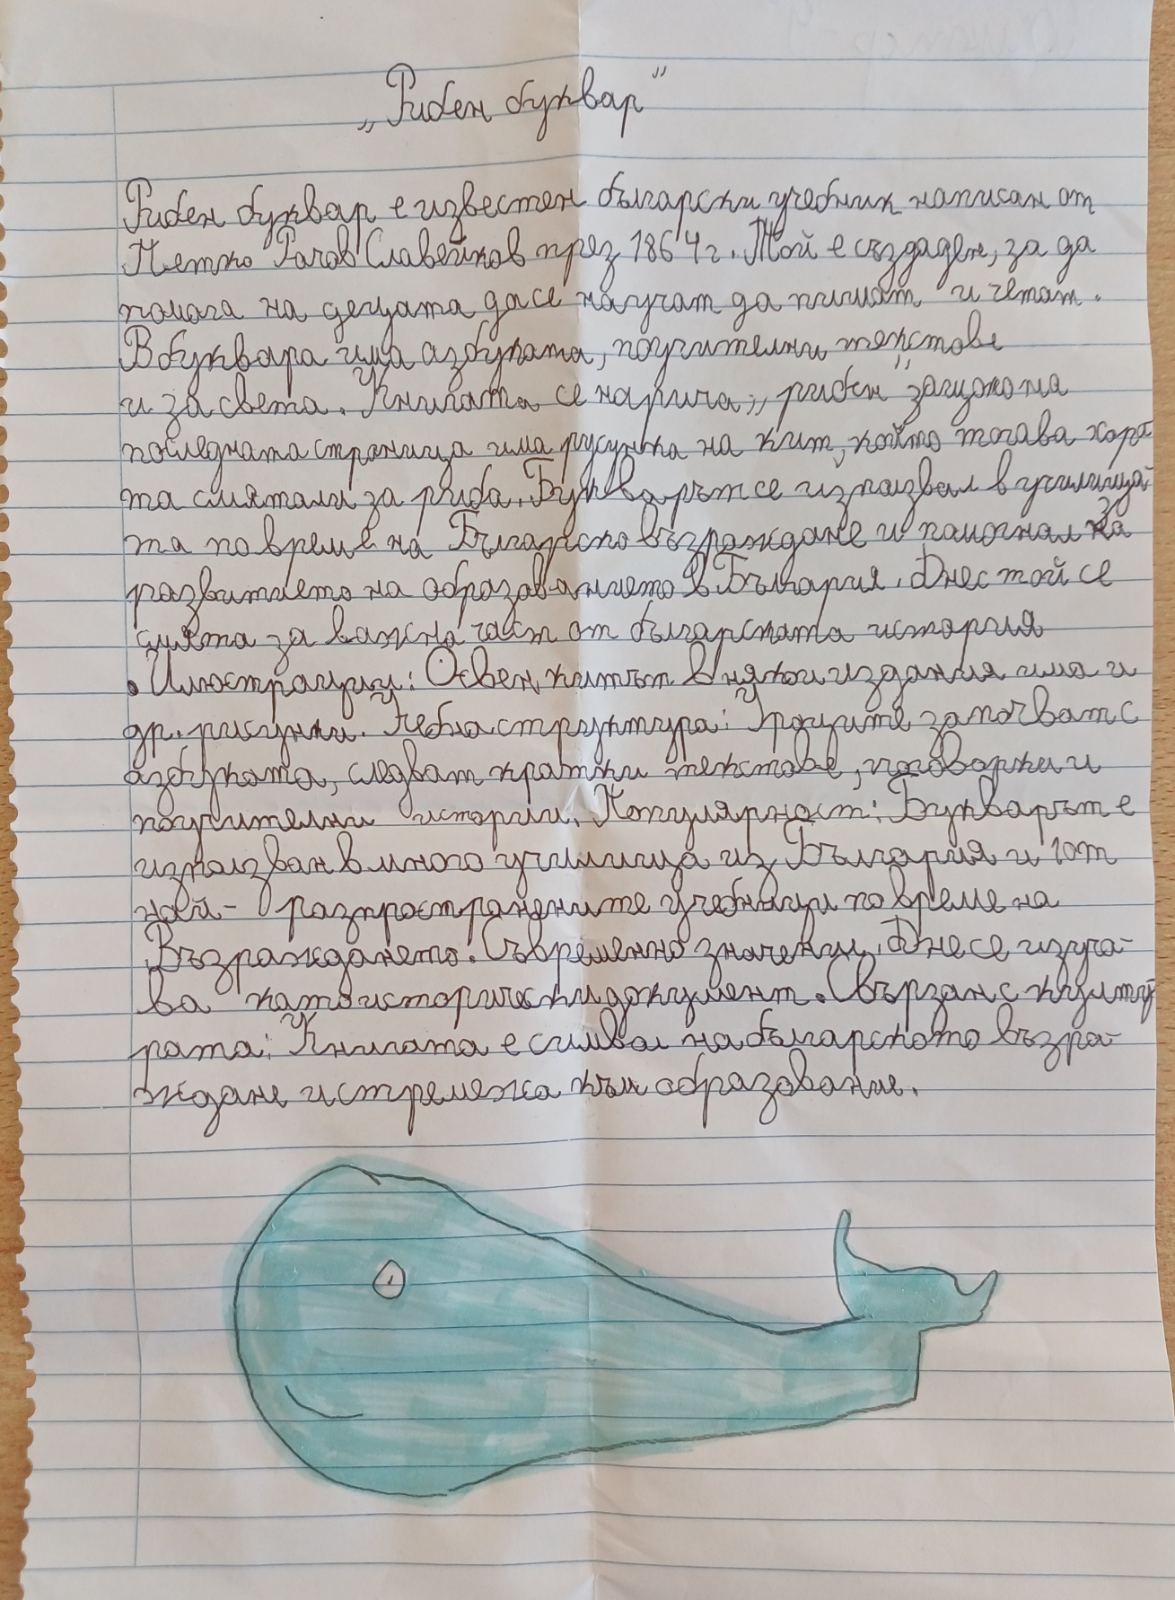 „Рибен буквар"
Рибен буквар е известен български учебник написан от
Петко Рачов Славейков през 1864г. Той е създаден, за да
помага на децата да се научат да пишат и четат.
В буквара има азбуката, поучителни текстове
и за света. Книгата се нарича „рибен" защото на
последната страница има русунка на кит, който тогава хора
та смятали за риба. Букварът се използвал в училища
та по време на Българско възраждане и помогнал за
развитието на образованието в България. Днес той се
смята за важна част от българската история
• Илюстрации: Освен китът в някои издания има и
др. рисунки. Учебна структура: Уроците започват с
азбуката, следват кратки текстове, поговорки и
поучителни истории. Популярност: Букварът е
използван в много училища из България и 1 от
най- разпространените учебници по време на
Възраждането. Съвременно значение. Днес се изуча-
ва като исторически документ. Свързан с култу
рата: Книгата е символ на българското възра-
ждане и стремежа към образование.